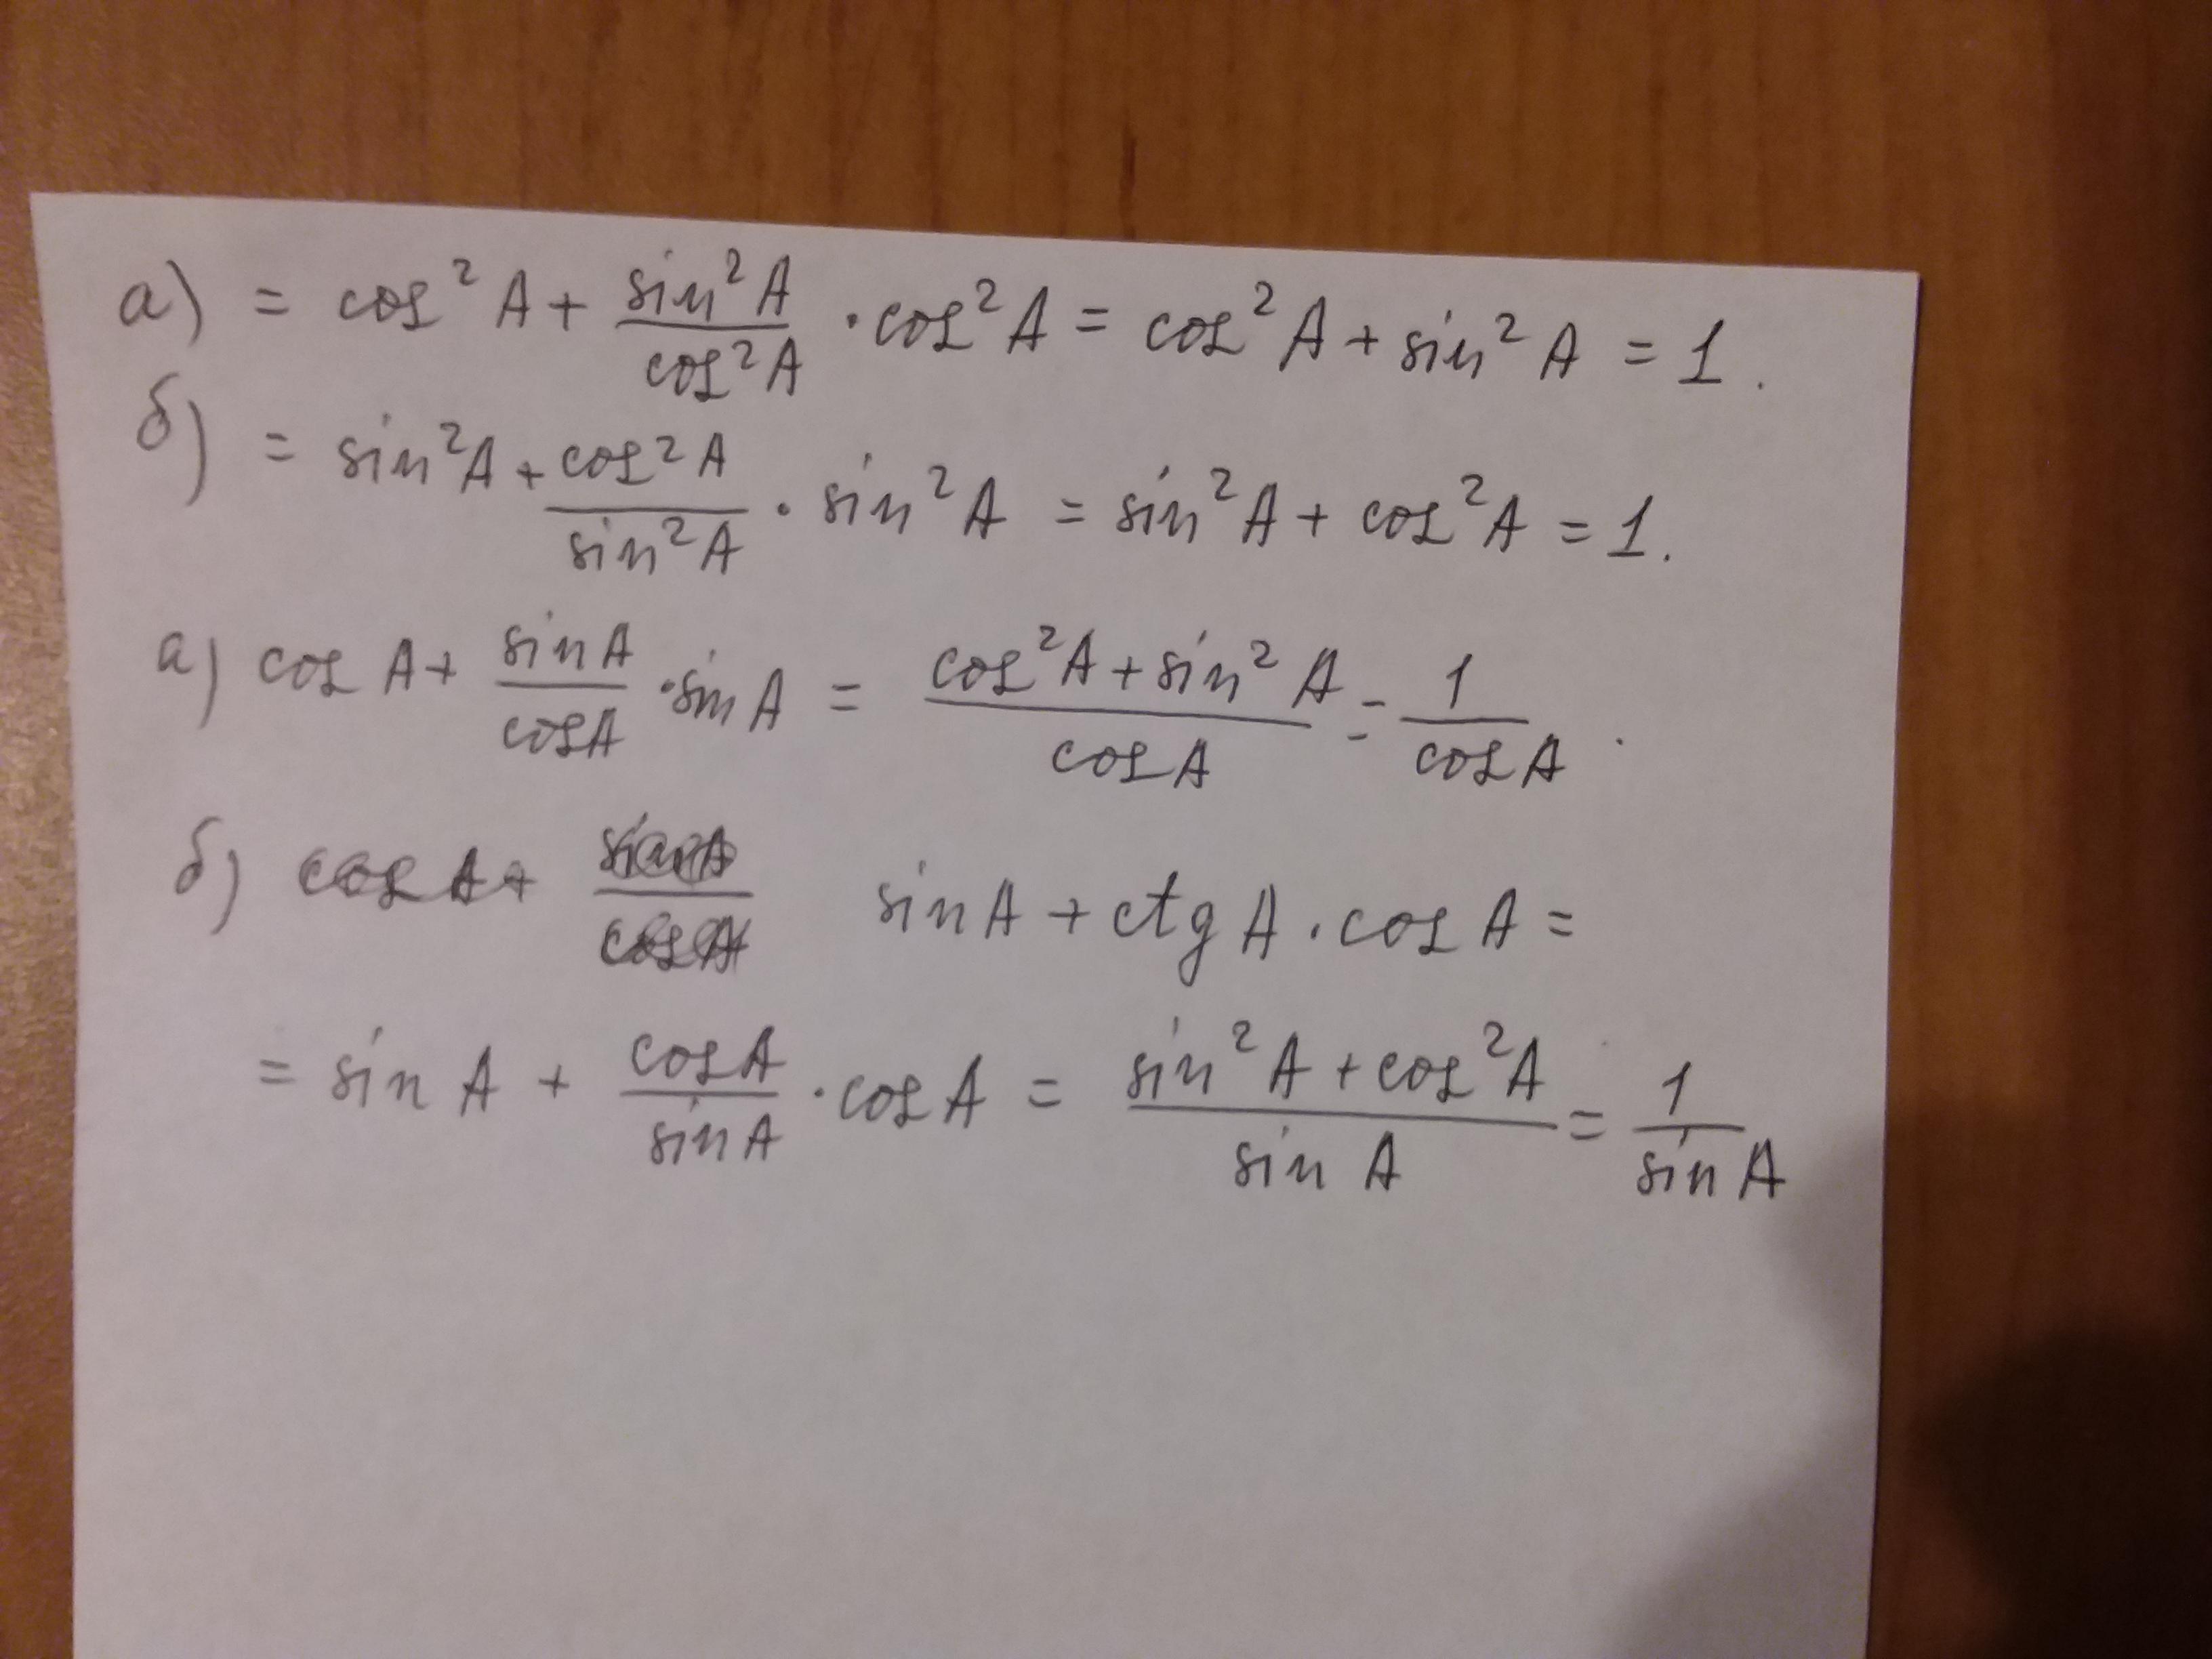 а) = cos² A + sin² A / cos² A · cos² A = cos² A + sin² A = 1.
б) = sin² A + cos² A / sin² A · sin² A = sin² A + cos² A = 1.
а) cos A + sin A / cos A · sin A = cos² A + sin² A / cos A = 1 / cos A.
б) cos A + sin A / cos A sin A + ctg A · cos A =
= sin A + cos A / sin A · cos A = sin² A + cos² A / sin A = 1 / sin A